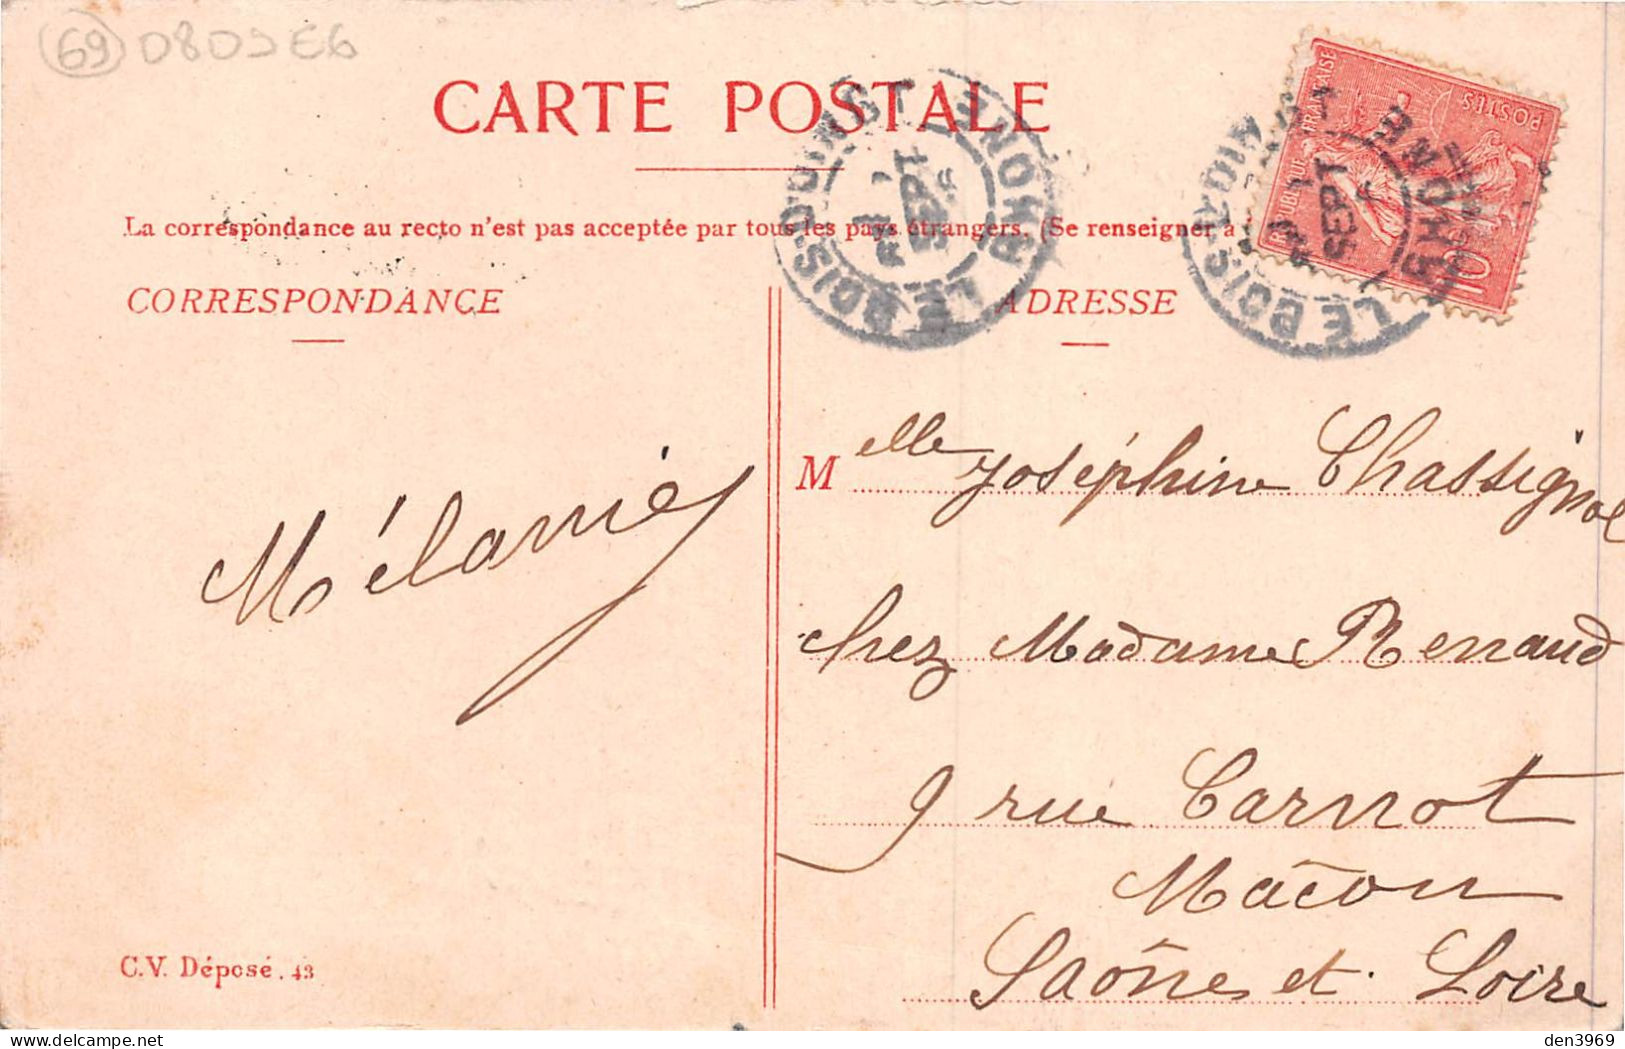 69 0809E6
CARTE POSTALE
La correspondance au recto n'est pas acceptée par tous les pays étrangers. (Se renseigner à
CORRESPONDANCE
ADRESSE
LE BOIS-D'OINGT RHONE
SEPT
LE BOIS-D'OINGT RHONE
SEPT
REPUBLIQUE FRANÇAISE
POSTES
10
Melle Joséphine Chassignol
chez Madame Renaud
9 rue Carnot
Mâcon
Saône et Loire
Mélanie
C.V. Déposé. 43
den3969